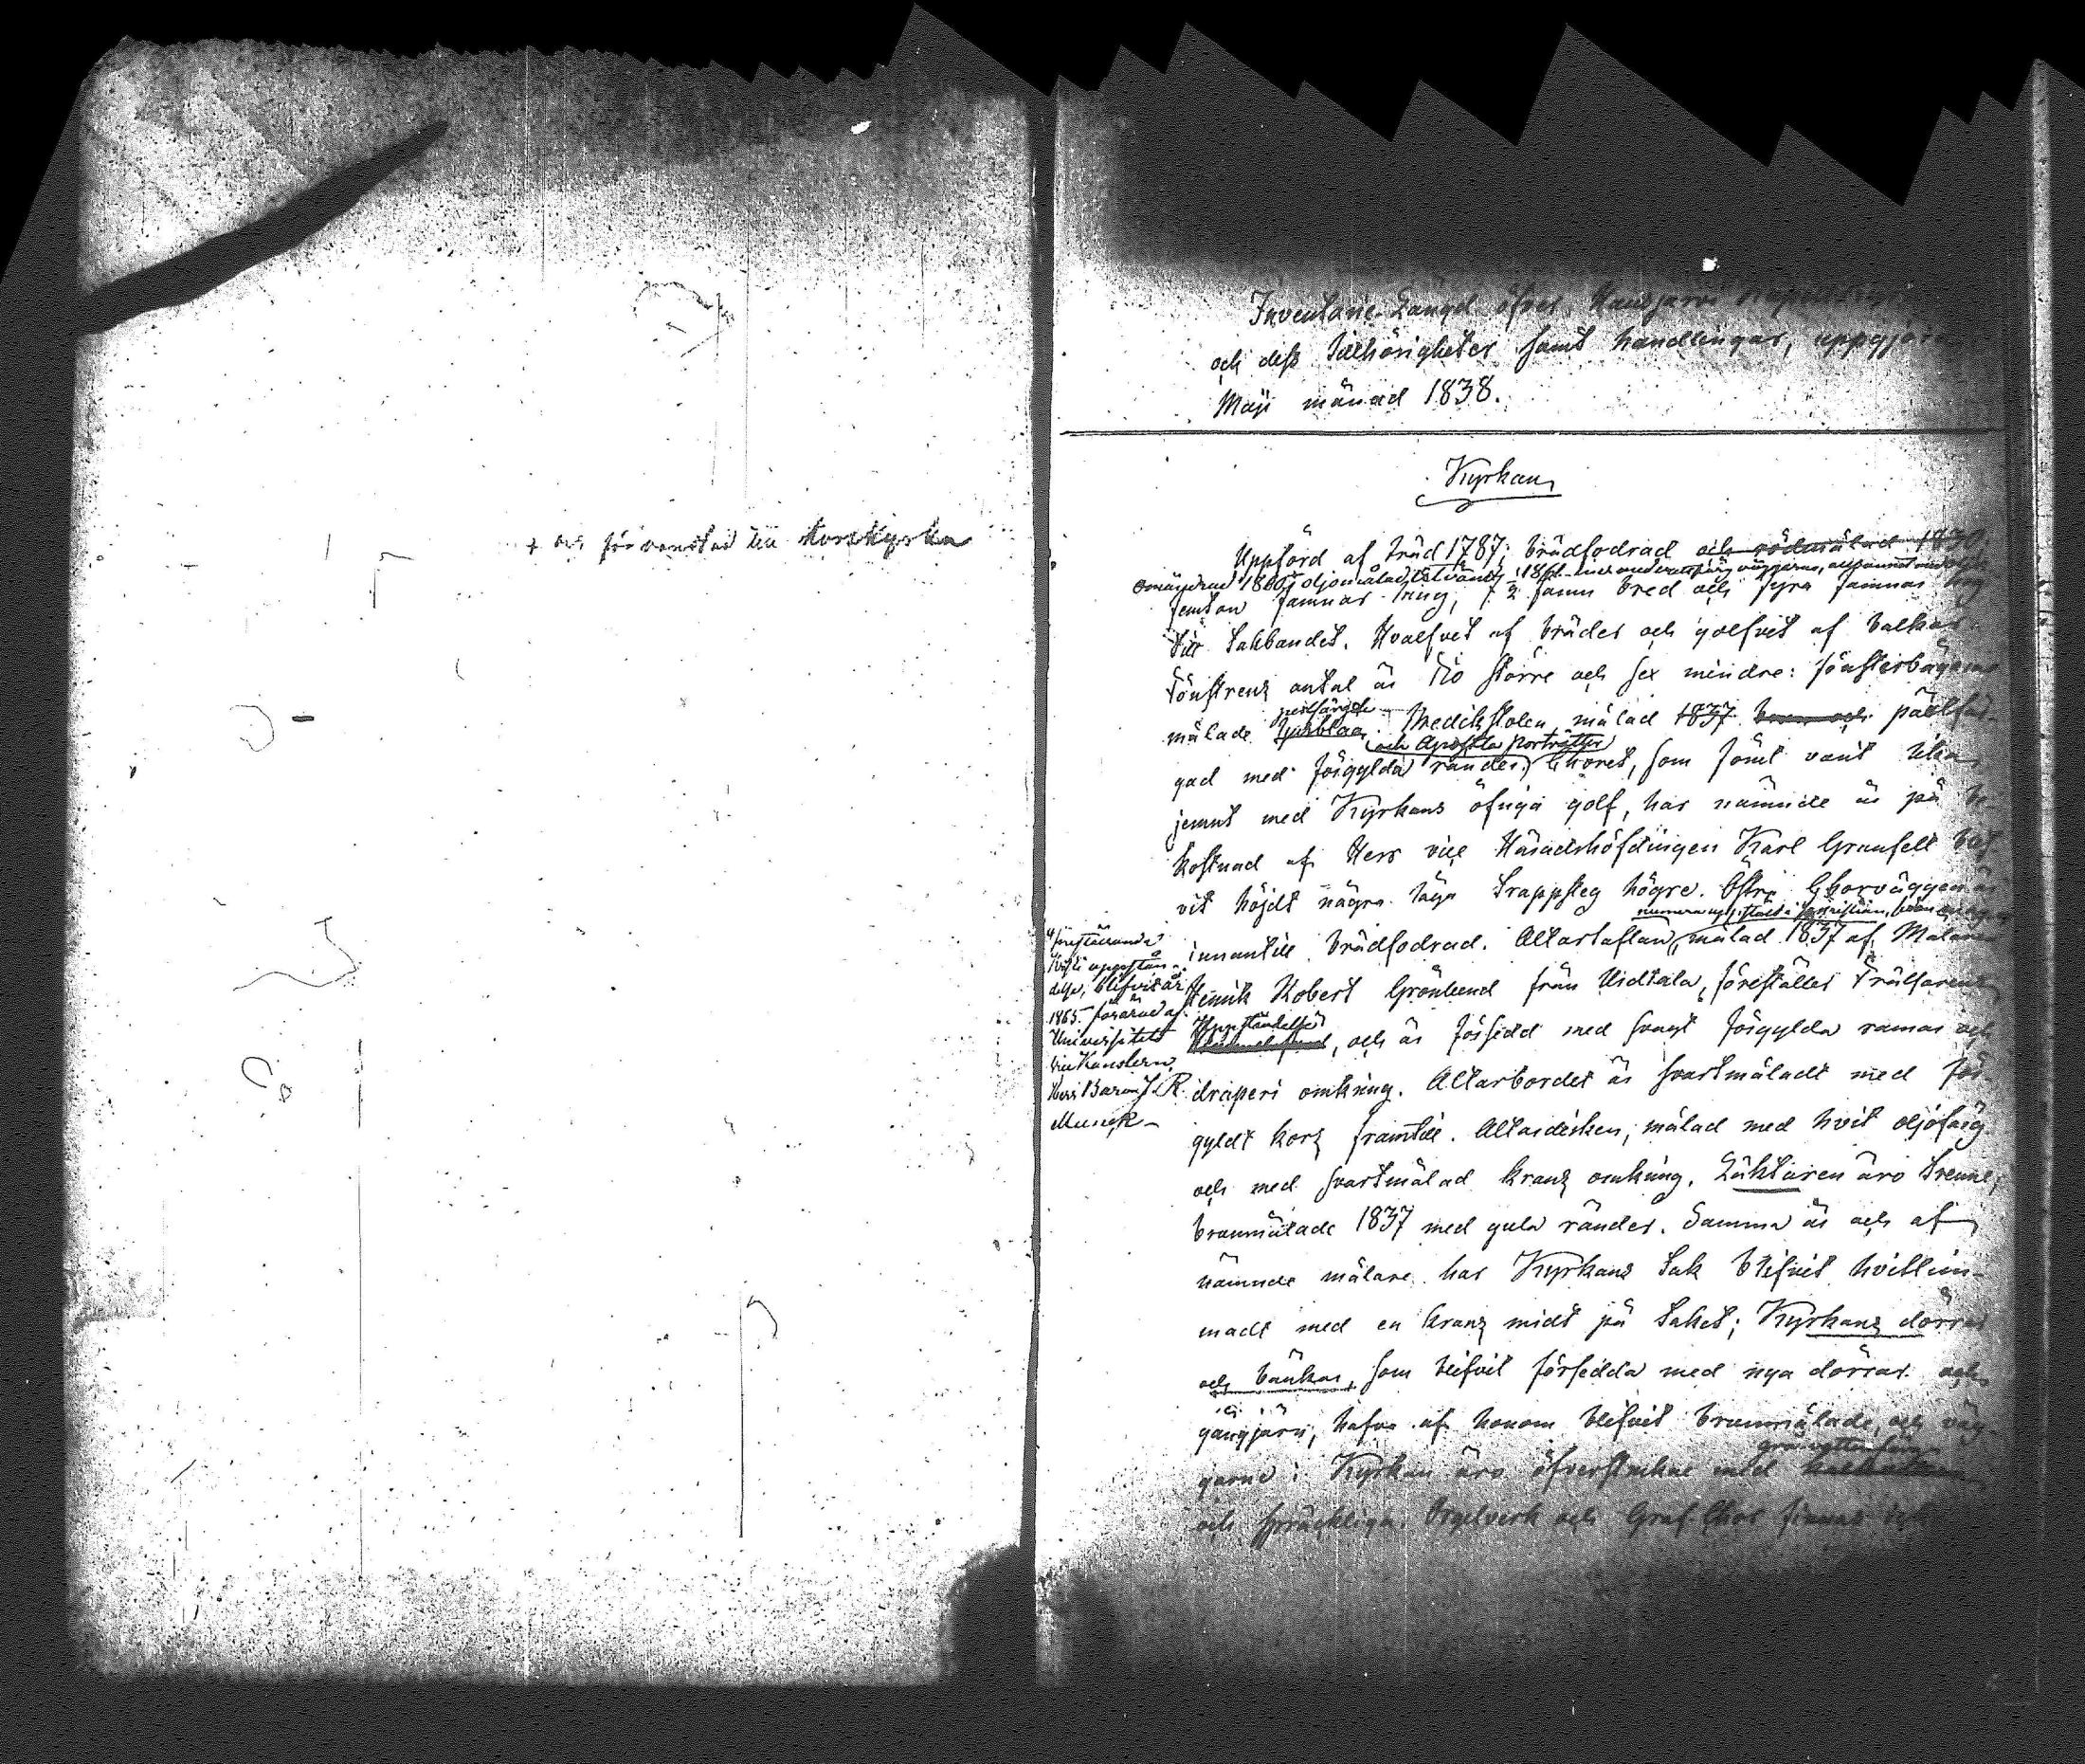 + och förvandlad till Korskyrka
Inventarie-Längd öfver Hausjärvi
och dess Tillhörigheter samt handlingar, uppgjord
Maji månad 1838.
Kyrkan
Uppförd af träd 1787; brädfodrad och rödmålad 1830,
omändrad 1860, oljemålad utvändig 1861
femton famnar lång, 7 1/2 famn bred och fyra famnar hög
till takbandet. Hvalfvet af bräder och golfvet af balkar.
Fönstrens antal är tio större och sex mindre: fönsterbågarne
perlfärgade
målade ljusblåa. Predikstolen målad 1837 brun och pärlfär-
och Apostla porträtter
gad med förgylda ränder. Choret, som förut varit
jemnt med Kyrkans öfriga golf, har nämnde år på be-
kostnad af Herr vice Häradshöfdingen Karl Granfelt blif-
vit höjdt några låga trappsteg högre. Östra Chorväggen är
numera uppstäld i sakristian,
innantill brädfodrad. Altartaflan, målad 1837 af Målaren
Henrik Robert Grönlund från Uskela, föreställer Frälsarens
Uppståndelse
, och är försedd med svagt förgylda ramar och
draperi omkring. Altarbordet är svartmåladt med för-
gyldt kors framtill. Altardisken, målad med hvit oljefärg
och med svartmålad krans omkring. Läktaren äro trenne,
brunmålade 1837 med gula ränder. Samma år och af
nämnde målare har Kyrkans tak blifvit hvitlim-
madt med en krans midt på taket; Kyrkans dörrar
och bänkar, som blifvit försedda med nya dörrar och
gångjärn, hafva af honom blifvit brunmålade, och väg-
grå vattenfärg
garne i Kyrkan äro öfverstrukne med
och spräckliga. Orgelverk och Graf-Chor finnas icke
föreställande
Kristi uppståndelse, blifvit år
1865 förärad af
Universitets
vice Kanslern,
Herr Baron J. R.
Munck